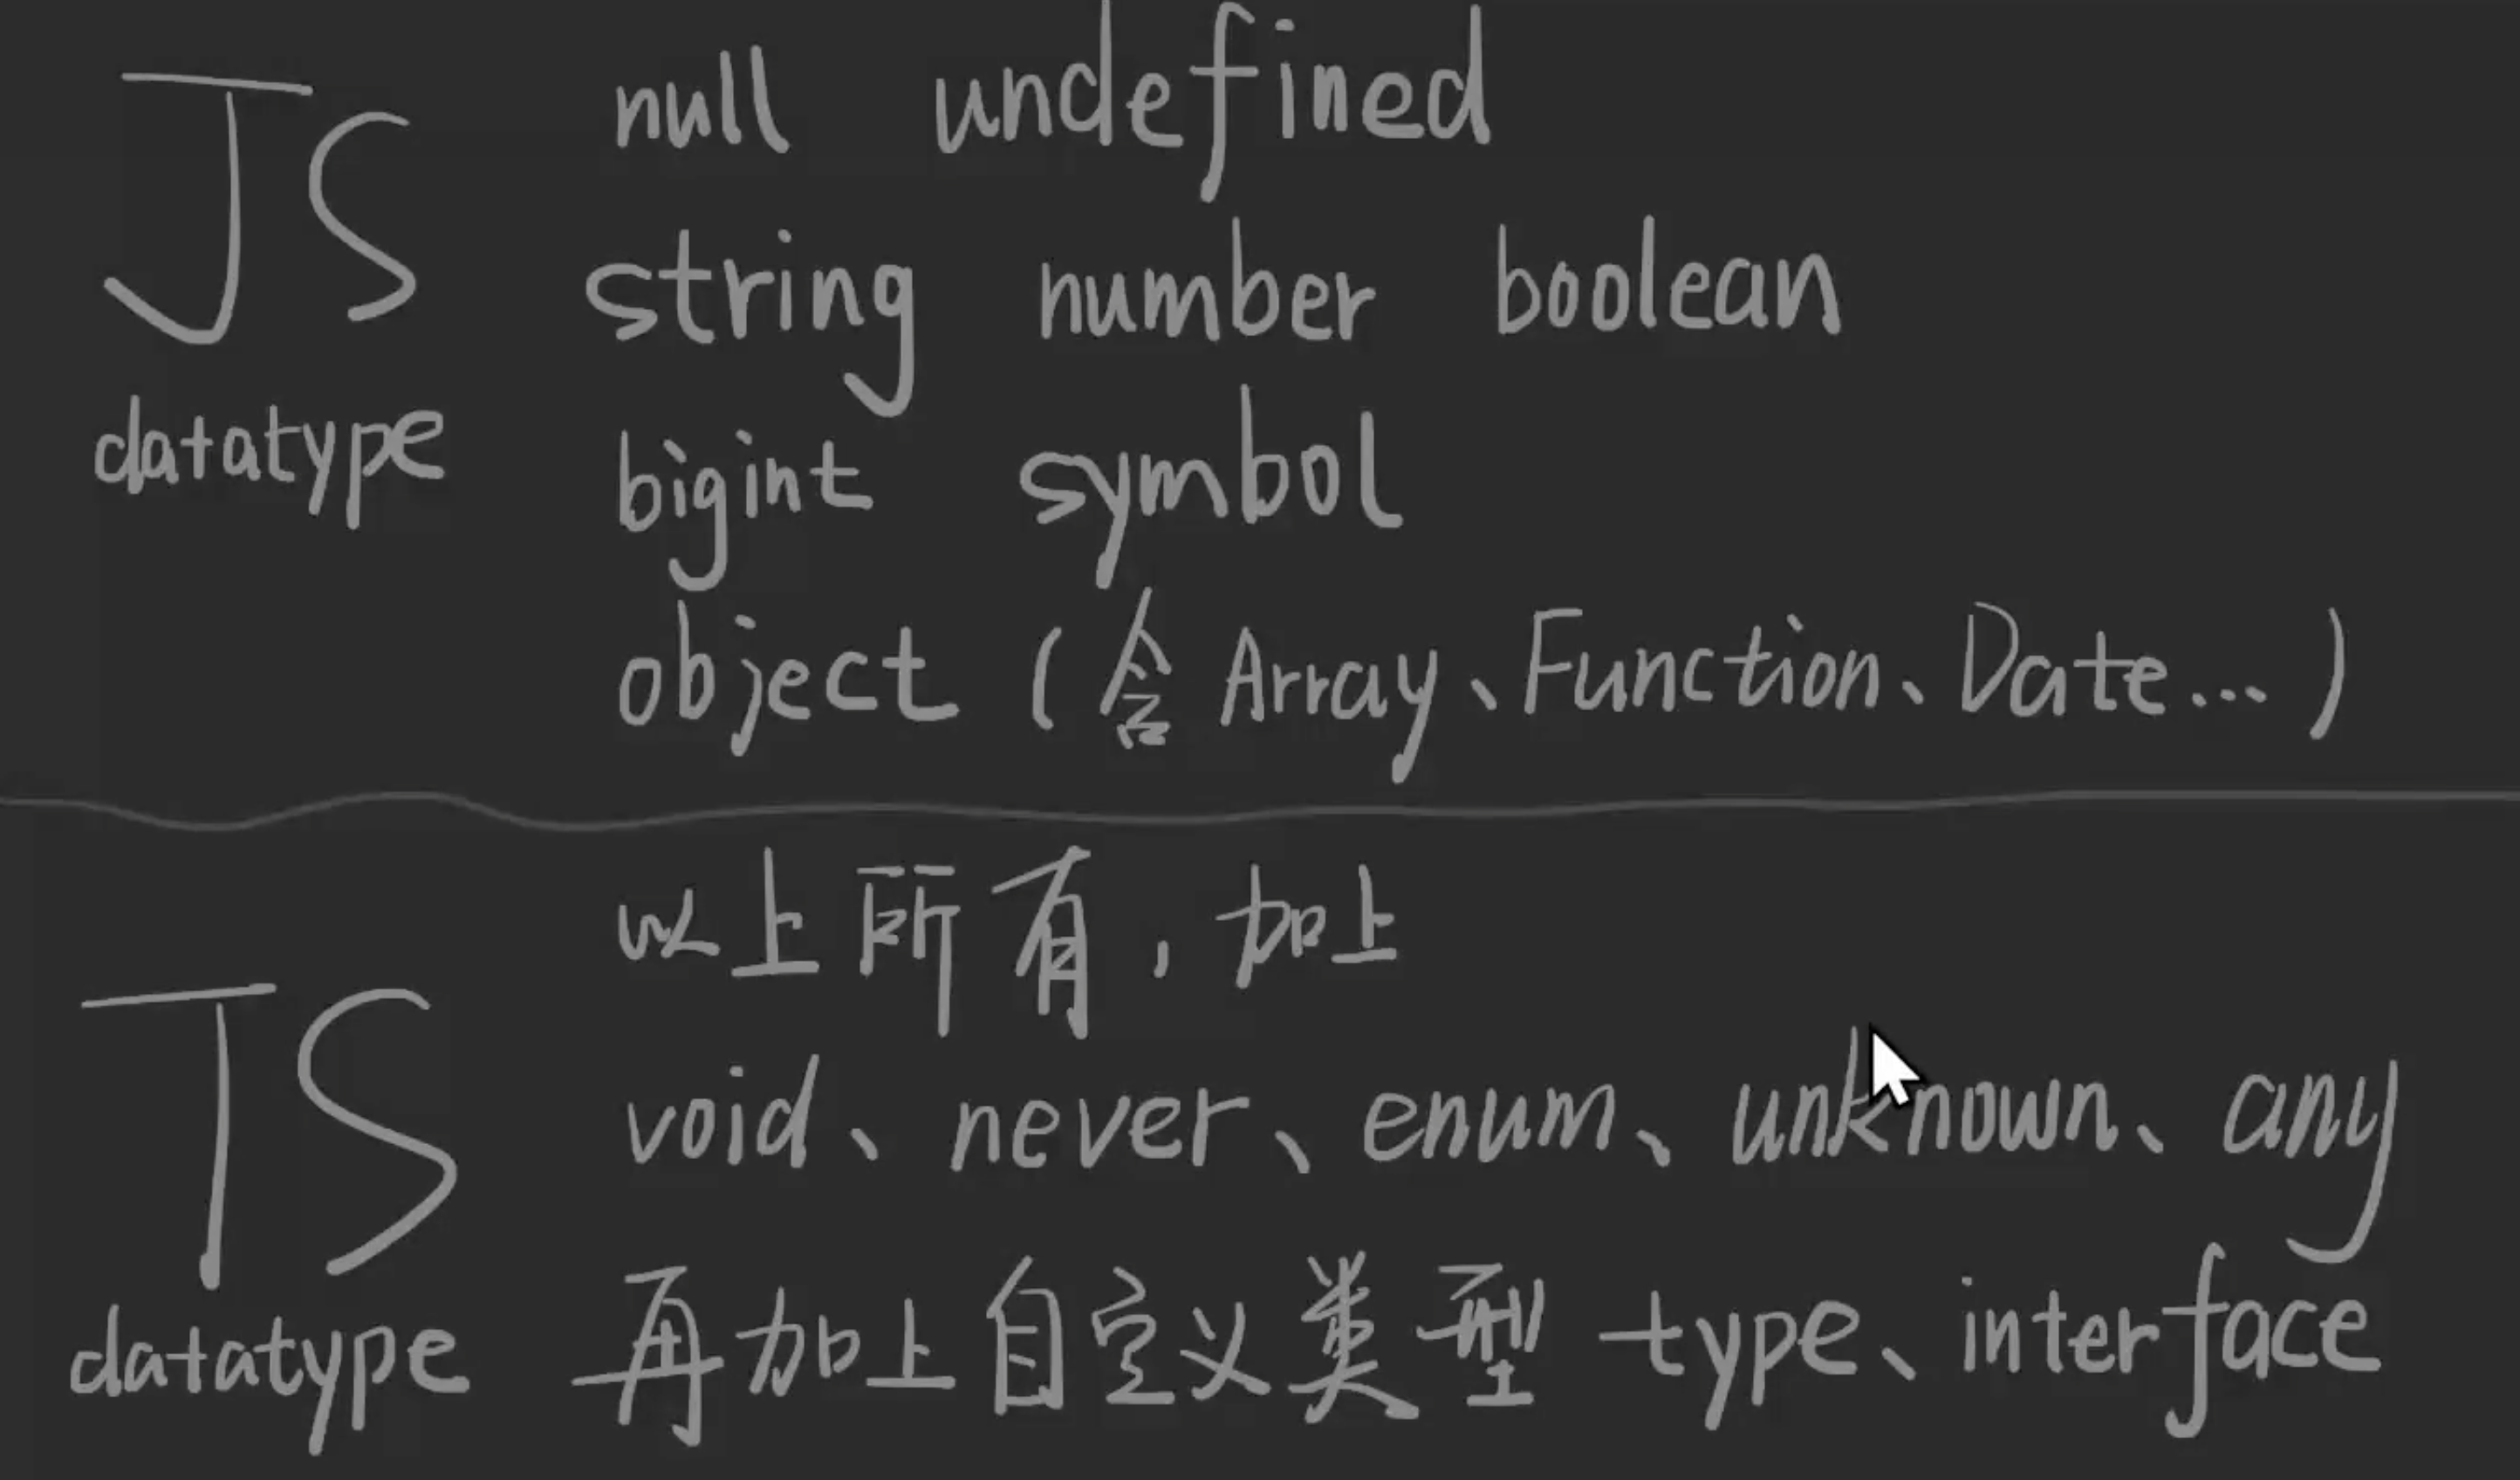 JS
datatype
null undefined
string number boolean
bigint symbol
object (含 Array、Function、Date...)
TS
datatype
以上所有，加上
void、never、enum、unknown、any
再加上自定义类型 type、interface